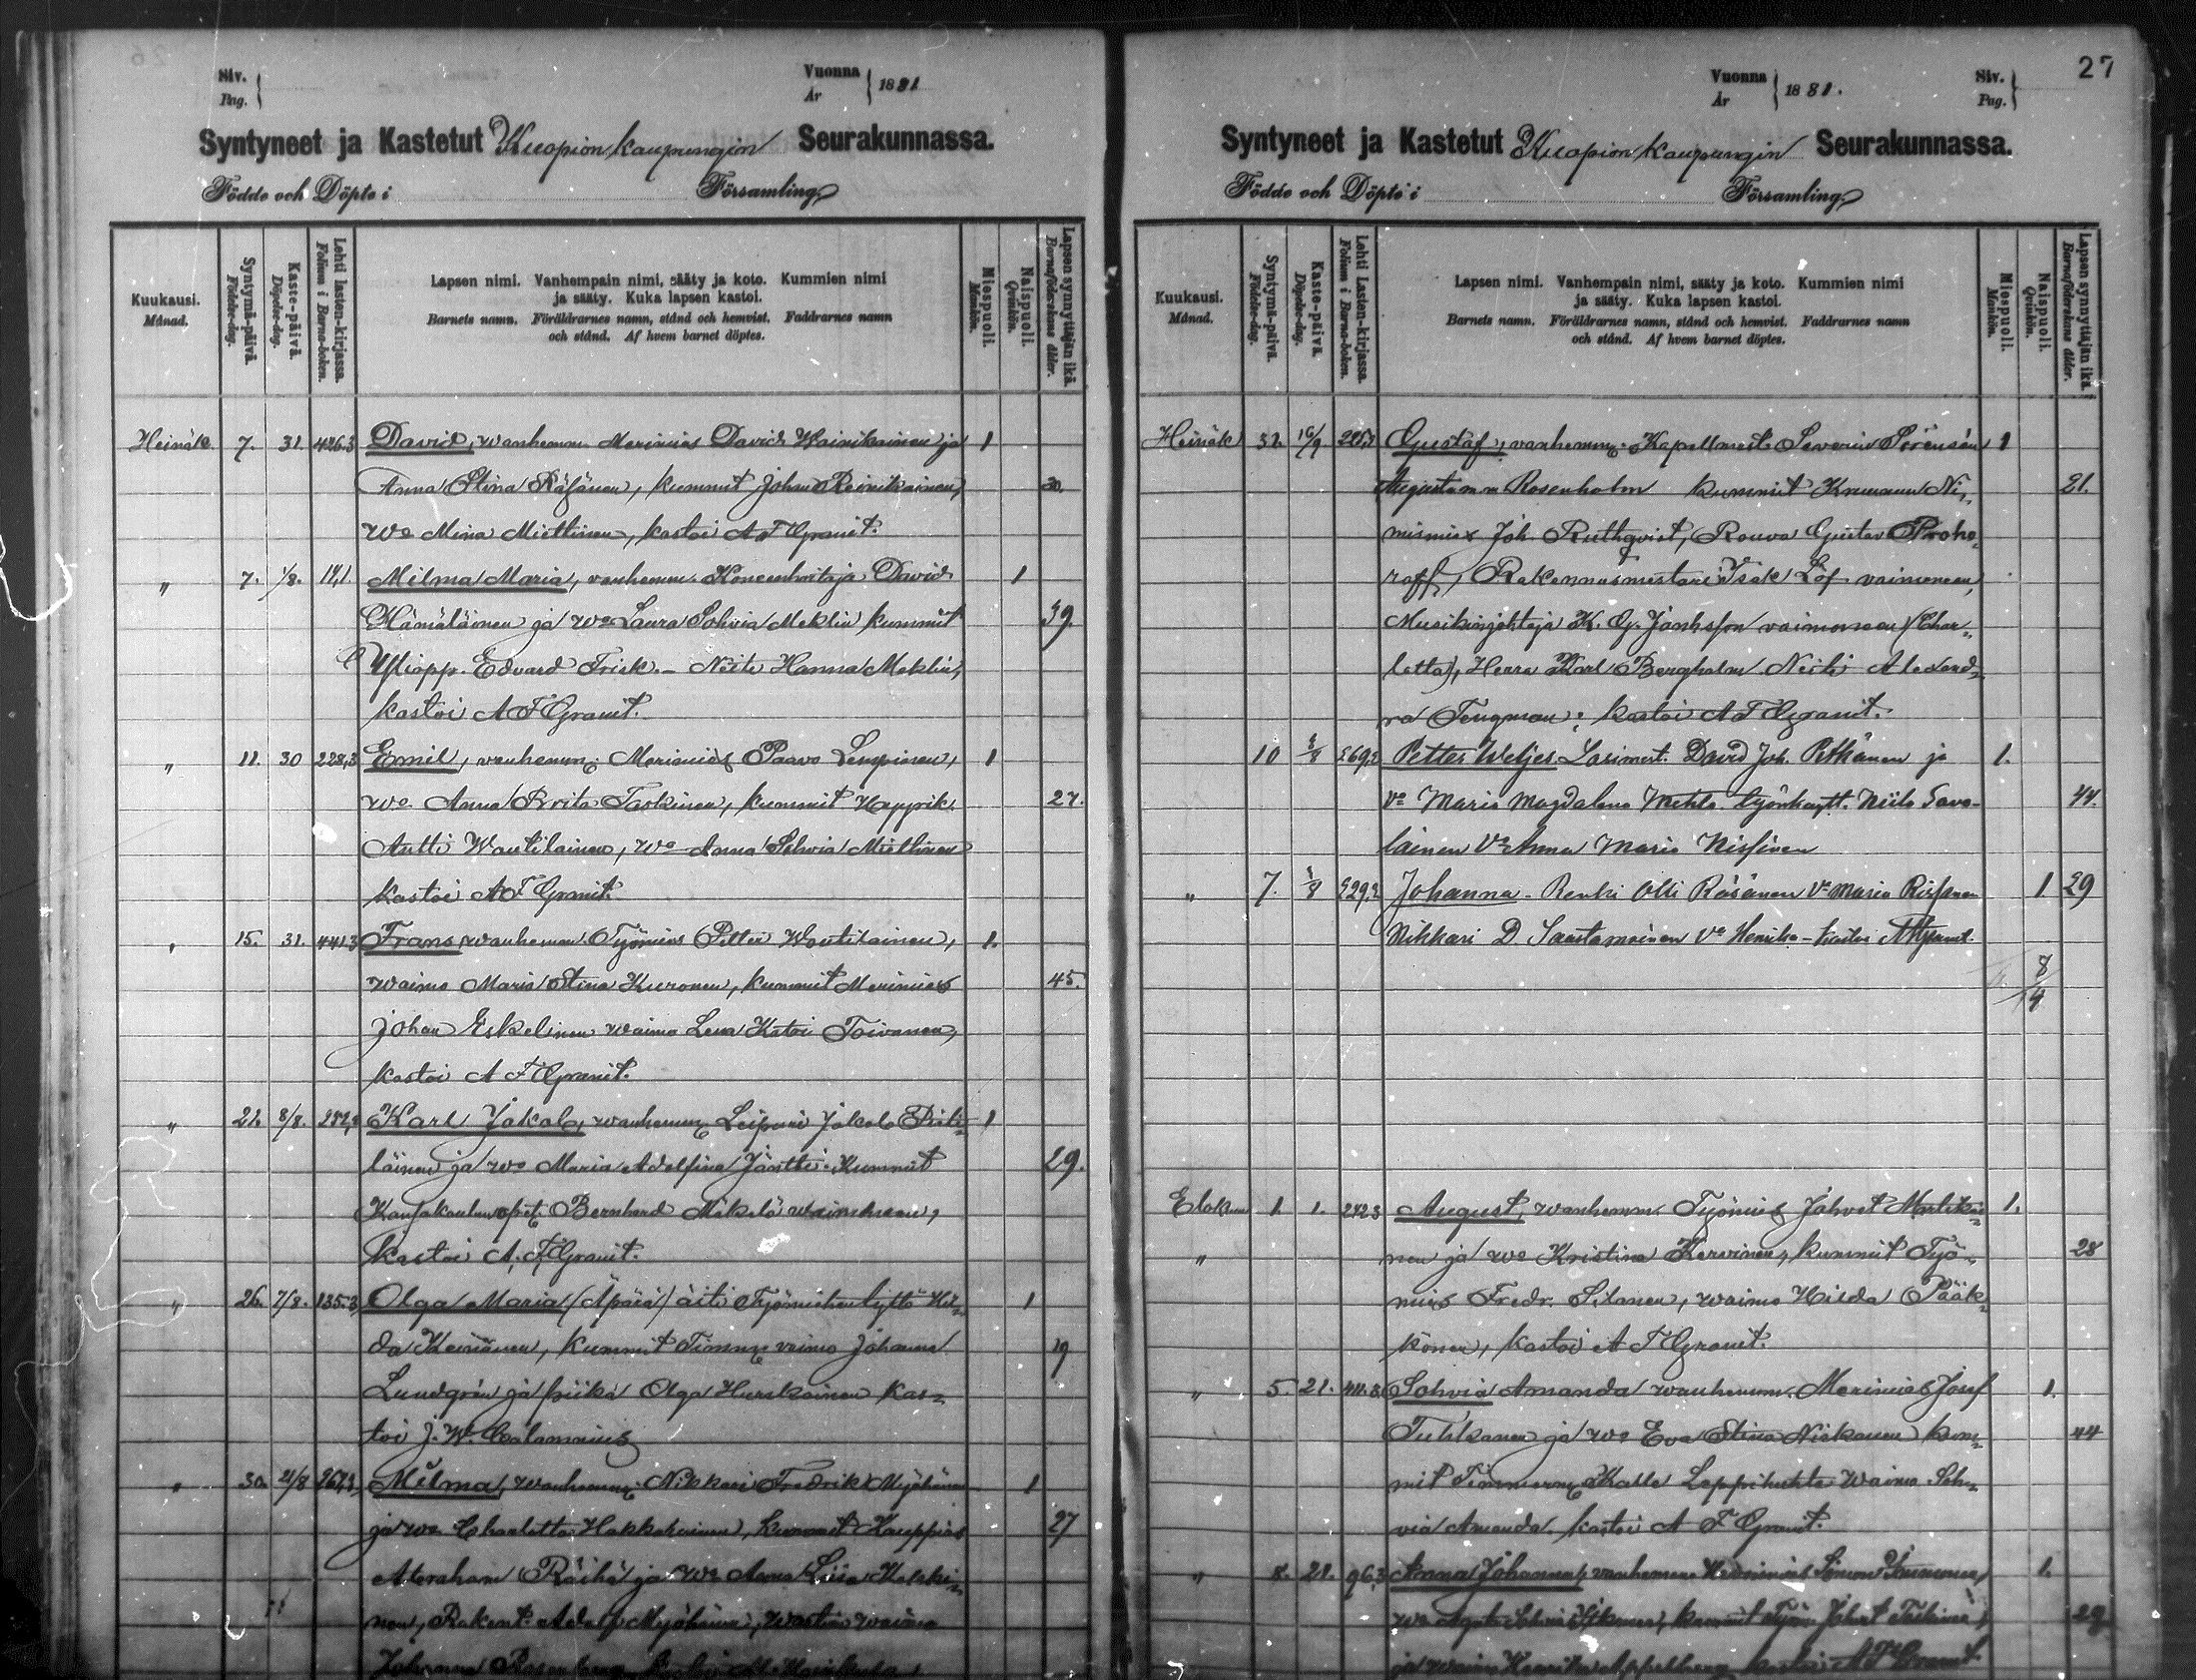 Siv.
Pag.
Vuonna
År
1881
Syntyneet ja Kastetut Kuopion kaupungin Seurakunnassa.
Födde och Döpte i Församling.
Kuukausi.
Månad.
Syntymä-päivä.
Födelse-dag.
Kaste-päivä.
Döpelse-dag.
Lehti lasten-kirjassa.
Folium i Barna-boken.
Lapsen nimi. Vanhempain nimi, sääty ja koto. Kummien nimi
ja sääty. Kuka lapsen kastoi.
Barnets namn. Föräldrarnes namn, stånd och hemvist. Faddrarnes namn
och stånd. Af hvem barnet döptes.
Miespuoli.
Mankön.
Naispuoli.
Qvinkön.
Lapsen synnyttäjän ikä.
Barnaföderskans ålder.
Heinäk. 7. 31. 426.3 David, wanhemm. Merimies David Wainikainen ja 1
Anna Stina Räsänen, kummit Johan Reinikainen, 30.
wo Mina Miettinen, kastoi A F Granit.
" 7. 1/8. Milma Maria, vanhemm. David 1
Hämäläinen ja wo Laura Sohvia Meklin kummit 39.
Yliopp. Edvard Frisk. - Neiti Hanna Meklin,
kastoi A F Granit.
" 11. 30 228,3 Emil, vanhemm. Merimies Paavo Lempinen, 1
wo Anna Brita Taskinen, kummit
Antti Wautilainen, wo Anna Sohvia Miettinen 27.
kastoi A F Granit.
" 15. 31. 441.3 Frans, wanhemm. Työmies Petter Woutilainen, 1.
waimo Maria Stina Kuronen, kummit Merimies 45.
Johan Eskelinen waimo Lena Katri Toivanen,
kastoi A F Granit.
" 21. 8/8. Karl Jakob, wanhemm. Leipuri Jakob 1
läinen ja wo Maria Adelfina Jäntti. Kummit 29.
Bernhard Mäkelä waimoneen,
kastoi A. F. Granit.
" 26. 7/8. 135.3 Olga Maria (Äpärä) äiti Työmiehen tyttö Hil- 1
da Keinänen, kummit Timm. vaimo Johanna 19
Lundgrén ja piika Olga Hurskainen kas-
toi J. W. Calamnius
" 30. 21/8 267.3 Milma, wanhemm. Nikkari Fredrik Myöhänen 1
ja wo Charlotta Hakkarainen, kummit Kauppias 27
Abraham Räihä ja wo Anna Liisa
nen, Rakent. Adolf Myöhänen, waimo
Johanna Rosenberg
27
Vuonna
År
1881.
Siv.
Pag.
Syntyneet ja Kastetut Kuopion kaupungin Seurakunnassa.
Födde och Döpte i Församling.
Kuukausi.
Månad.
Syntymä-päivä.
Födelse-dag.
Kaste-päivä.
Döpelse-dag.
Lehti Lasten-kirjassa.
Folium i Barna-boken.
Lapsen nimi. Vanhempain nimi, sääty ja koto. Kummien nimi
ja sääty. Kuka lapsen kastoi.
Barnets namn. Föräldrarnes namn, stånd och hemvist. Faddrarnes namn
och stånd. Af hvem barnet döptes.
Miespuoli.
Mankön.
Naispuoli.
Qvinkön.
Lapsen synnyttäjän ikä.
Barnaföderskans ålder.
Heinäk 31. 16/9 Gustaf, vanhemm. Kapellmest. Severin Sörensén 1
Augusta Rosenholm kummit Kruunun Ni- 21.
mismies Joh. Ruthqvist, Rouva Gustav Proho-
roff, Rakennusmestari Isak Löf vaimoneen,
Musikinjohtaja K. G. Jonhsson vaimoneen (Char-
lotta), Herra Karl Bergholm Neiti Alexand-
ra Tengman; kastoi A F Granit.
10 269.2 Petter Weljes. Lasimest. David Joh. Pitkänen ja 1.
Vo Maria Magdalena työnkaytt. Niilo Savo- 44.
lainen Vo Anna Maria Nissinen
" 7. 229.2 Johanna - Renki Olli Räsänen Vo Maria Rissanen 1 29
Nikkari D Saastamoinen Vo Henrika - kastoi A F Granit.
8
9
Elokuu 1. 1. 242.3 August, wanhemm. Työmies Johvet Martikai- 1.
" nen ja wo Kristina Kervinen, kummit Työ- 28
mies Fredr. Silanen, waimo Hilda Pääk-
könen, kastoi A F Granit.
" 5. 21. 411.3 Sohvia Amanda wanhemm. Merimies Josef 1.
Tuhkanen ja wo Eva Stina Niskanen kum- 44
mit Timmerm. Kalle Leppihuhta Waimo Soh-
via Amanda. kastoi A F Granit.
" 8. 21. 96.3 Anna Johanna, vanhemm. Simon 1.
kummit Työm. 29
ja waimo kastoi A F Granit